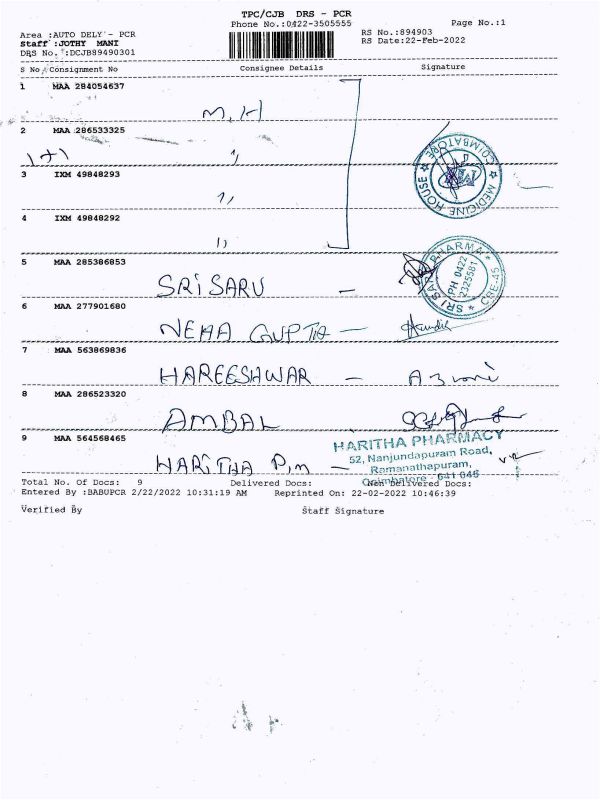 TPC/CJB DRS - PCR
Phone No.:0422-3505555
Page No.:1
Area :AUTO DELY - PCR
RS No.:894903
Staff :JOTHY MANI
RS Date:22-Feb-2022
DRS No. :DCJB89490301
S No Consignment No Consignee Details Signature
1 MAA 284054637
M.H
2 MAA 286533325
1+1 ,,
3 IXM 49848293
,,
4 IXM 49848292
,,
MEDICINE HOUSE
COIMBATORE
5 MAA 285386853
SRI SARU -
SRI SARU PHARMA
PH 0422
2325581
CBE-45
6 MAA 277901680
NEHA GUPTA -
7 MAA 563869836
HAREESHWAR -
8 MAA 286523320
AMBAL
9 MAA 564568465
HARITHA P,m -
HARITHA PHARMACY
52, Nanjundapuram Road,
Ramanathapuram,
Coimbatore - 641 045
Total No. Of Docs: 9 Delivered Docs: Non Delivered Docs:
Entered By :BABUPCR 2/22/2022 10:31:19 AM Reprinted On: 22-02-2022 10:46:39
Verified By Staff Signature